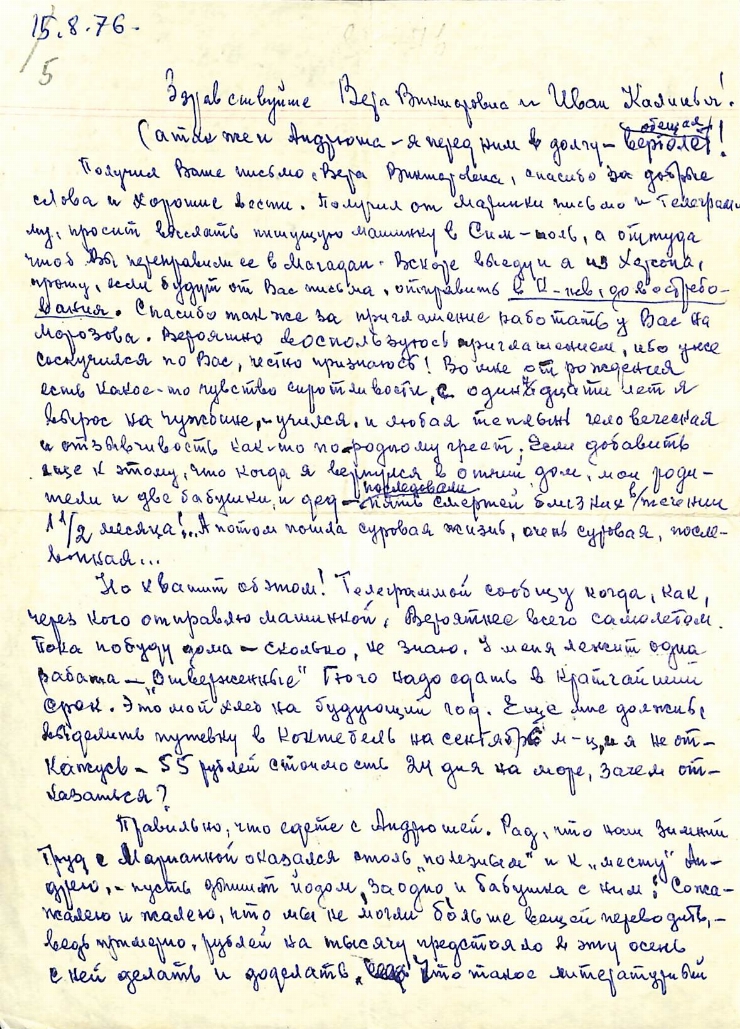 15.8.76.
5
Здравствуйте Вера Викторовна и Иван Калиныч!
обещал
(а также и Андрюша – я перед ним в долгу – вертолет!
Получил Ваше письмо, Вера Викторовна, спасибо за добрые
слова и хорошие вести. Получил от Маринки письмо и телеграм-
му, просит выслать пишущую машинку в Сим-поль, а оттуда
чтоб Вы переправили ее в Магадан. Вскоре выеду и а из Херсона,
прошу, если будут от Вас письма, отправить в К-иев, до востребо-
вания. Спасибо также за приглашение работать у Вас на
Морозова. Вероятно воспользуюсь приглашением, ибо уже
соскучился по Вас, честно признаюсь! Во мне от рождения
есть какое-то чувство сиротливости, с одиннадцати лет я
вырос на чужбине, – учился, и любая теплынь человеческая
и отзывчивость как-то по-родному греет. Если добавить
еще к этому, что когда я вернулся в отчий дом, мои роди-
тели и две бабушки, и дед – последовали пять смертей близких в течении
1 1/2 месяца!.. А потом пошла суровая жизнь, очень суровая, после-
военная...
Но хватит об этом! Телеграммой сообщу когда, как,
через кого отправлю машинкой, Вероятнее всего самолетом.
Пока побуду дома – сколько, не знаю. У меня лежит одна
работа – "Отверженные" Гюго надо сдать в кратчайший
срок. Это мой хлеб на будующий год. Еще мне должны
выделить путевку в Коктебель на сентябрь м-ц, и я не от-
кажусь – 55 рублей стоимость 24 дня на море, зачем от-
казаться?
Правильно, что едете с Андрюшей. Рад, что наш зимний
труд с Марианкой оказался столь "полезным" и к "месту" Ан-
дрею, – пусть дышит йодом, заодно и бабушка с ним! Сожа-
жалею и жалею, что мы не могли больше вещей переводить, –
ведь примерно, рублей на тысячу предстояло в эту осень
с ней делать и доделать. Что такое литературный